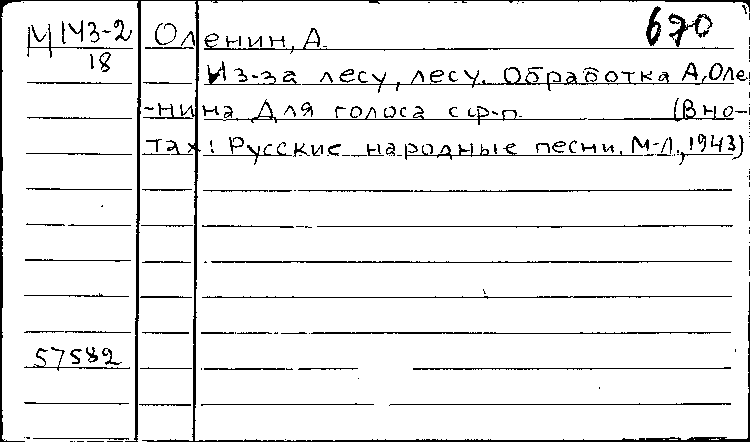 М 143-2 Оленин, А. 670
18
Из-за лесу, лесу. Обработка А. Оле-
-нина. Для голоса с ф-п. (В но-
тах: Русские народные песни. М-Л., 1943)
57582